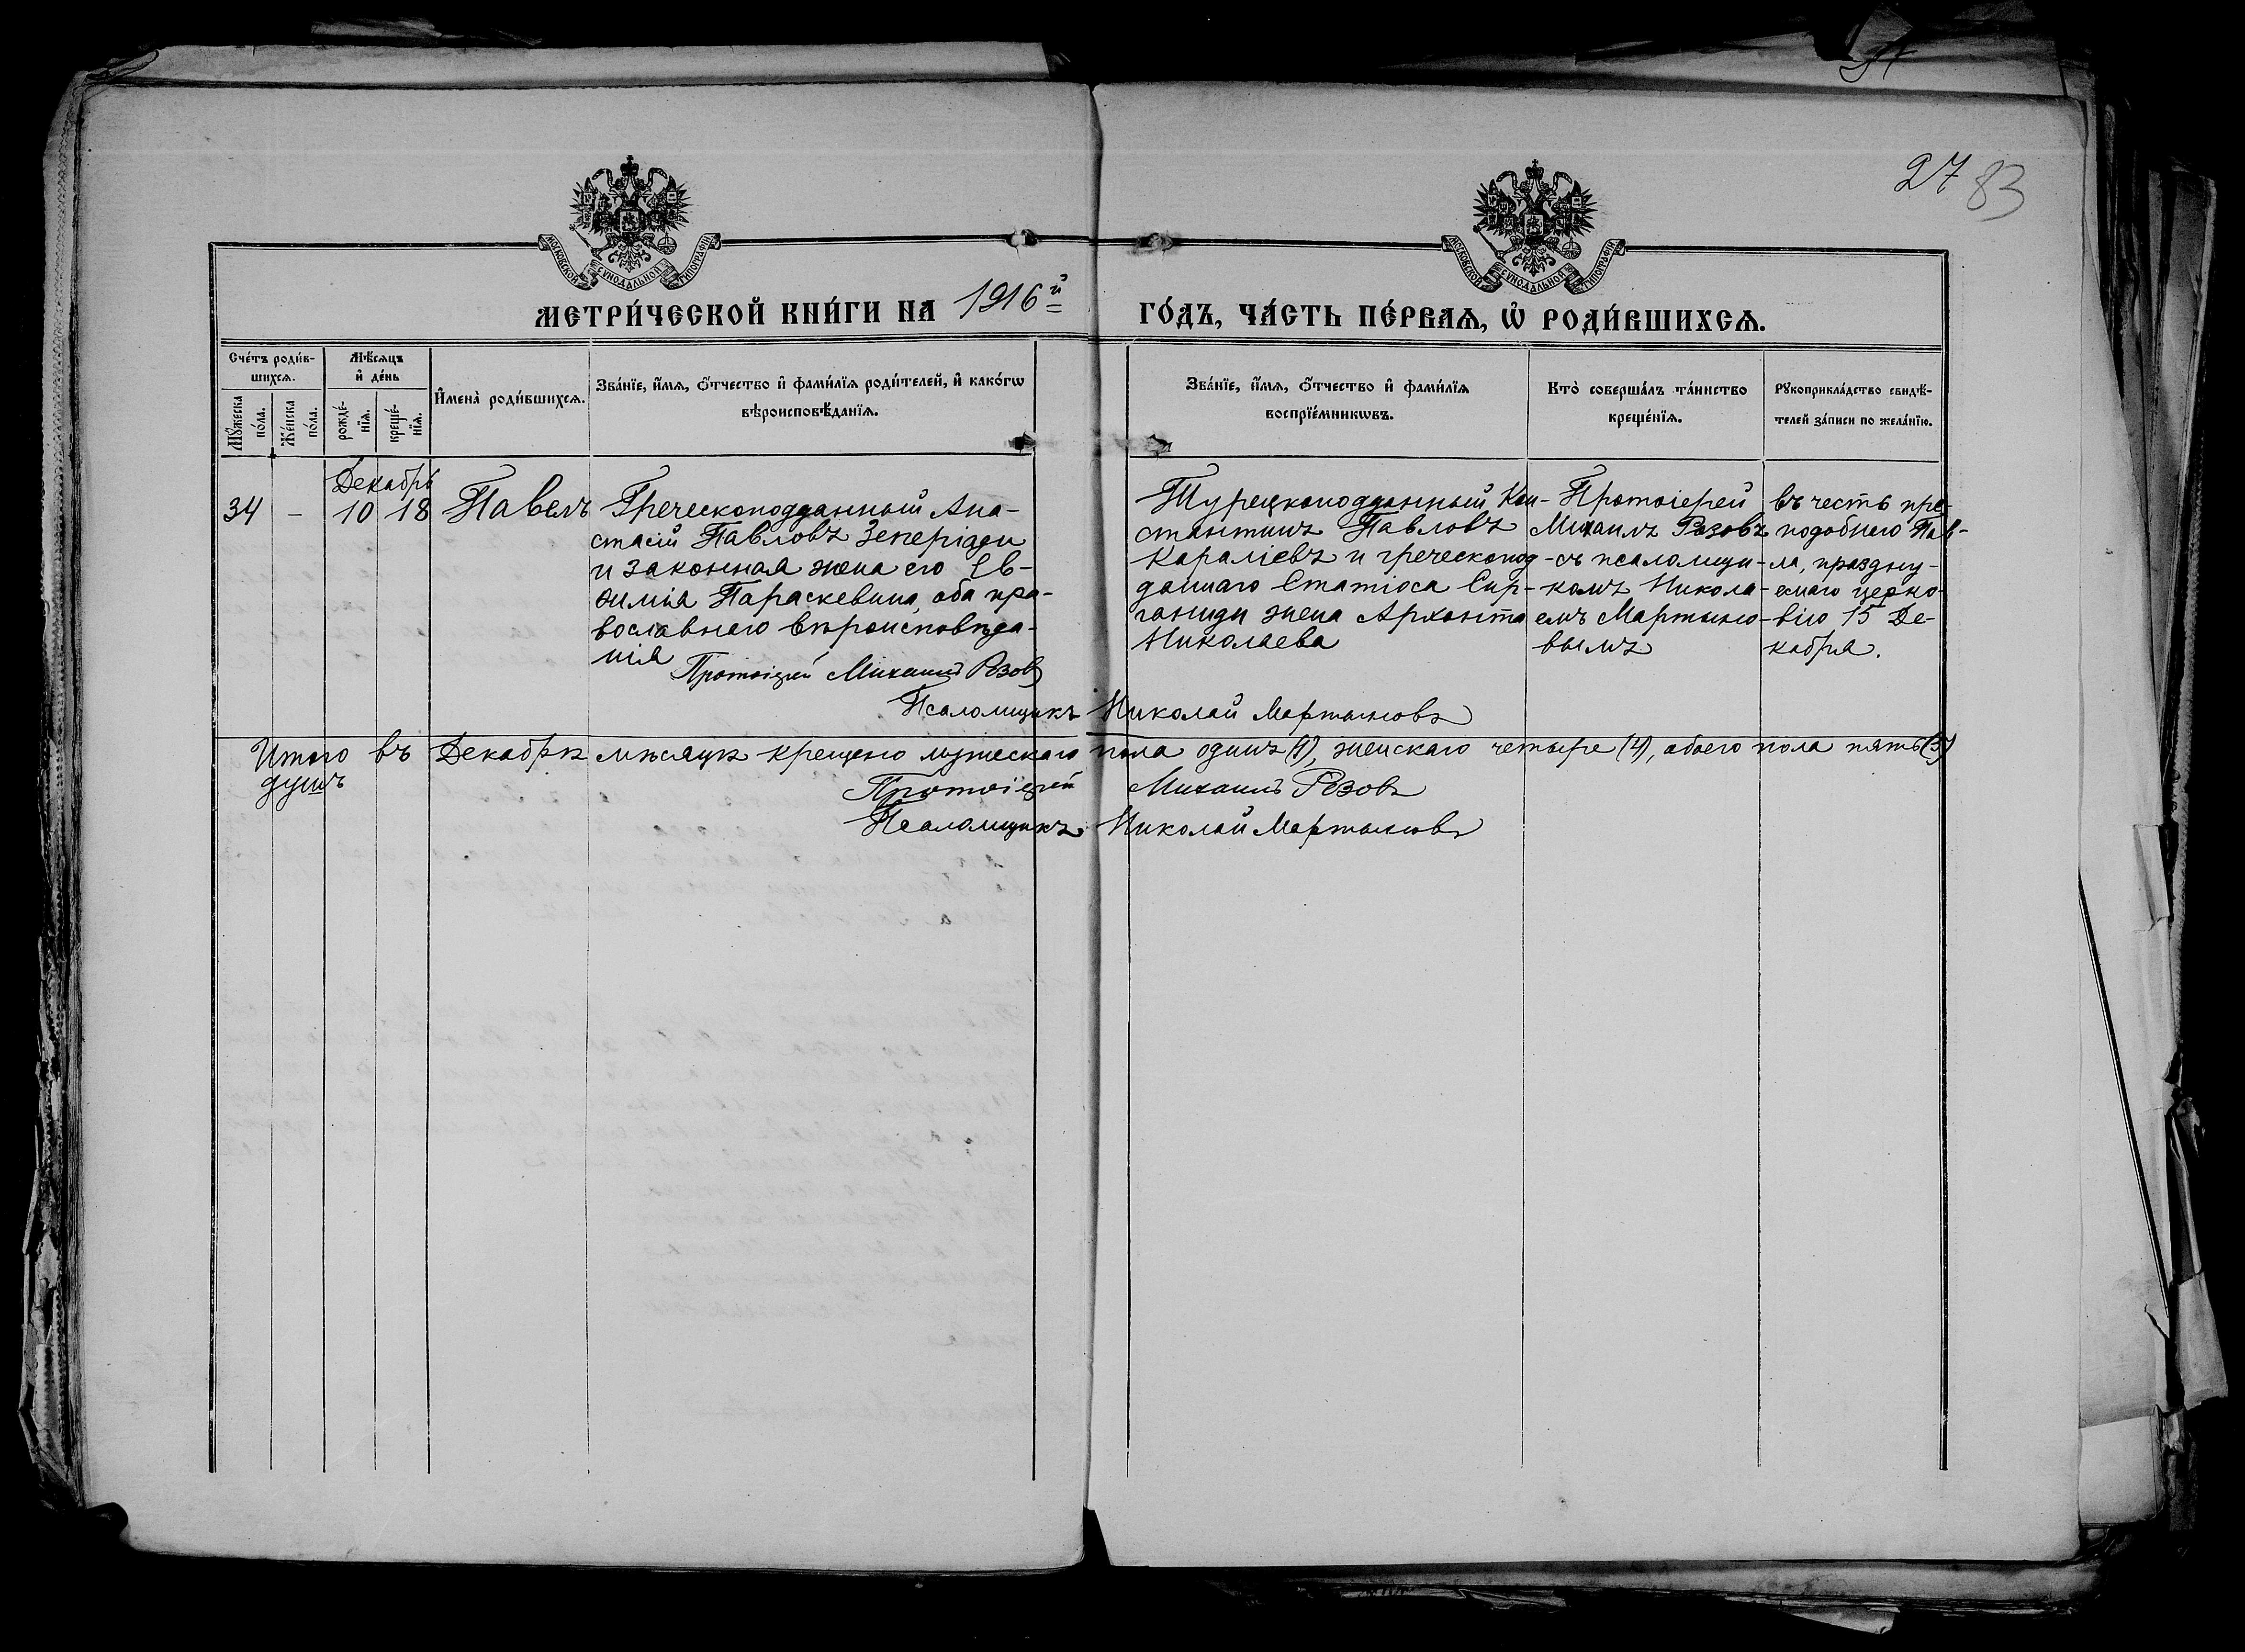 27 83
МОСКОВСКОЙ СѴНОДАЛЬНОЙ ТИПОГРАФІИ
МОСКОВСКОЙ СѴНОДАЛЬНОЙ ТИПОГРАФІИ
МЕТРИ́ЧЕСКОЙ КНИ́ГИ НА 1916й ГО́ДЪ, ЧА́СТЬ ПЕ́РВАѦ, Ѡ҆ РОДИ́ВШИХСѦ.
Сче́тъ роди́в-
шихсѧ.
Мꙋ́жеска по́ла.
Же́нска по́ла.
Мѣ́сѧцъ
и҆ де́нь
рожде́-
нїѧ.
креще́-
нїѧ.
И҆мена̀ роди́вшихсѧ.
Зва́нїе, и҆́мѧ, ѻ҆́тчество и҆ фами́лїѧ роди́телей, и҆ како́гѡ
вѣроисповѣ́данїѧ.
Зва́нїе, и҆́мѧ, ѻ҆́тчество и҆ фами́лїѧ
воспрїе́мникѡвъ.
Кто̀ соверша́лъ та́инство
креще́нїѧ.
Рꙋкоприкла́дство свидѣ́-
телей за́писи по жела́нїю.
Декабрь
34 - 10 18 Павелъ
Греческоподданный Ана-
стасій Павловъ Зеперіади
и законная жена его Ев-
фимія Параскевина, оба пра-
вославнаго вѣроисповѣда-
нія
Турецкоподданный Кон-
стантинъ Павловъ
Караліевъ и греческопод-
даннаго Статіоса Сир-
ганиди жена Архонта
Николаева
Протоіерей
Михаилъ Розовъ
съ псаломщи-
комъ Никола-
емъ Мартыно-
вымъ
въ честь пре-
подобнаго Пав-
ла, праздну-
емаго церко-
вію 15 Де-
кабря.
Протоіерей Михаилъ Розовъ
Псаломщикъ Николай Мартыновъ
Итого въ Декабрѣ мѣсяцѣ крещено мужескаго пола одинъ (1), женскаго четыре (4), обоего пола пять (5)
душъ
Протоіерей Михаилъ Розовъ
Псаломщикъ Николай Мартыновъ